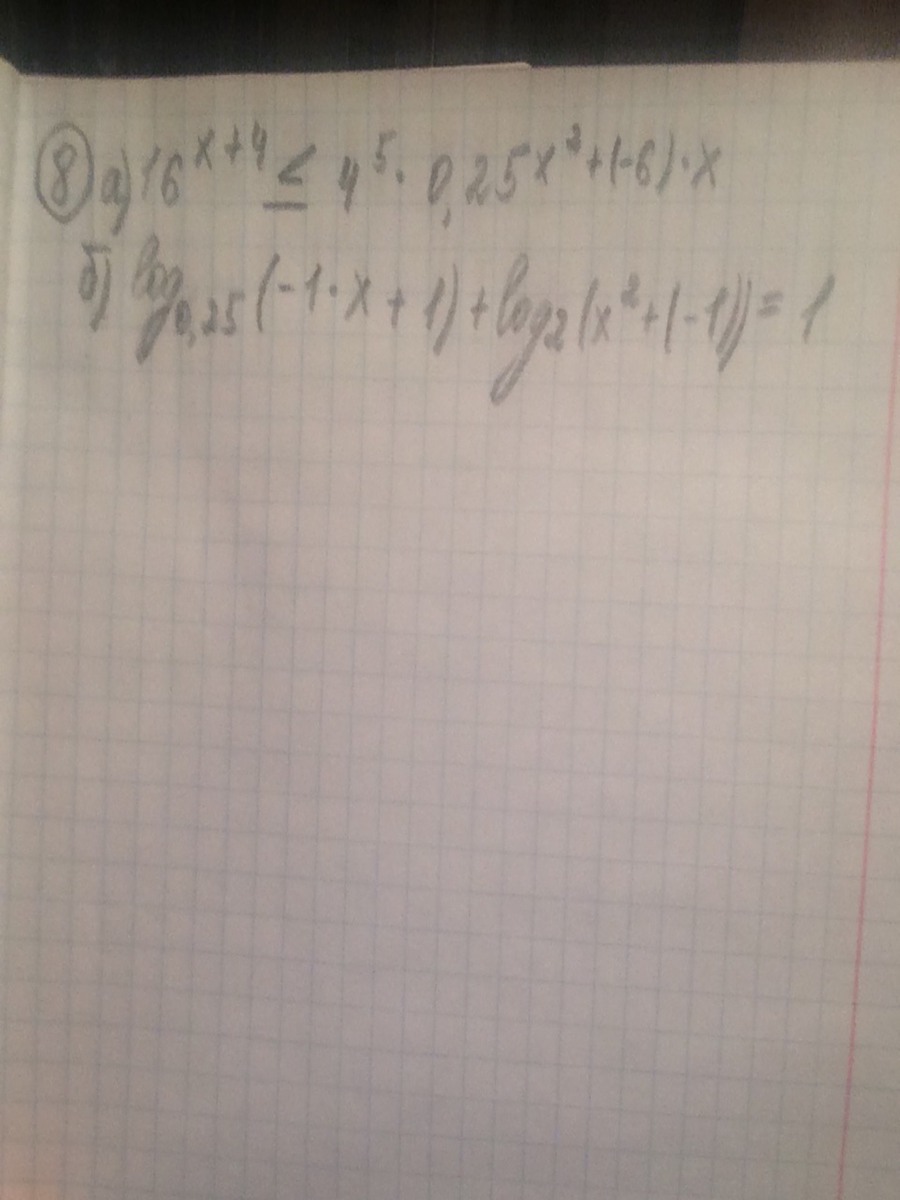 ⑧ а) 16^{x+4} ≤ 4^5 · 0,25^{x^2+(-6)·x}
б) log_{0,25}(-1·x+1)+log_2(x^2+(-1))=1